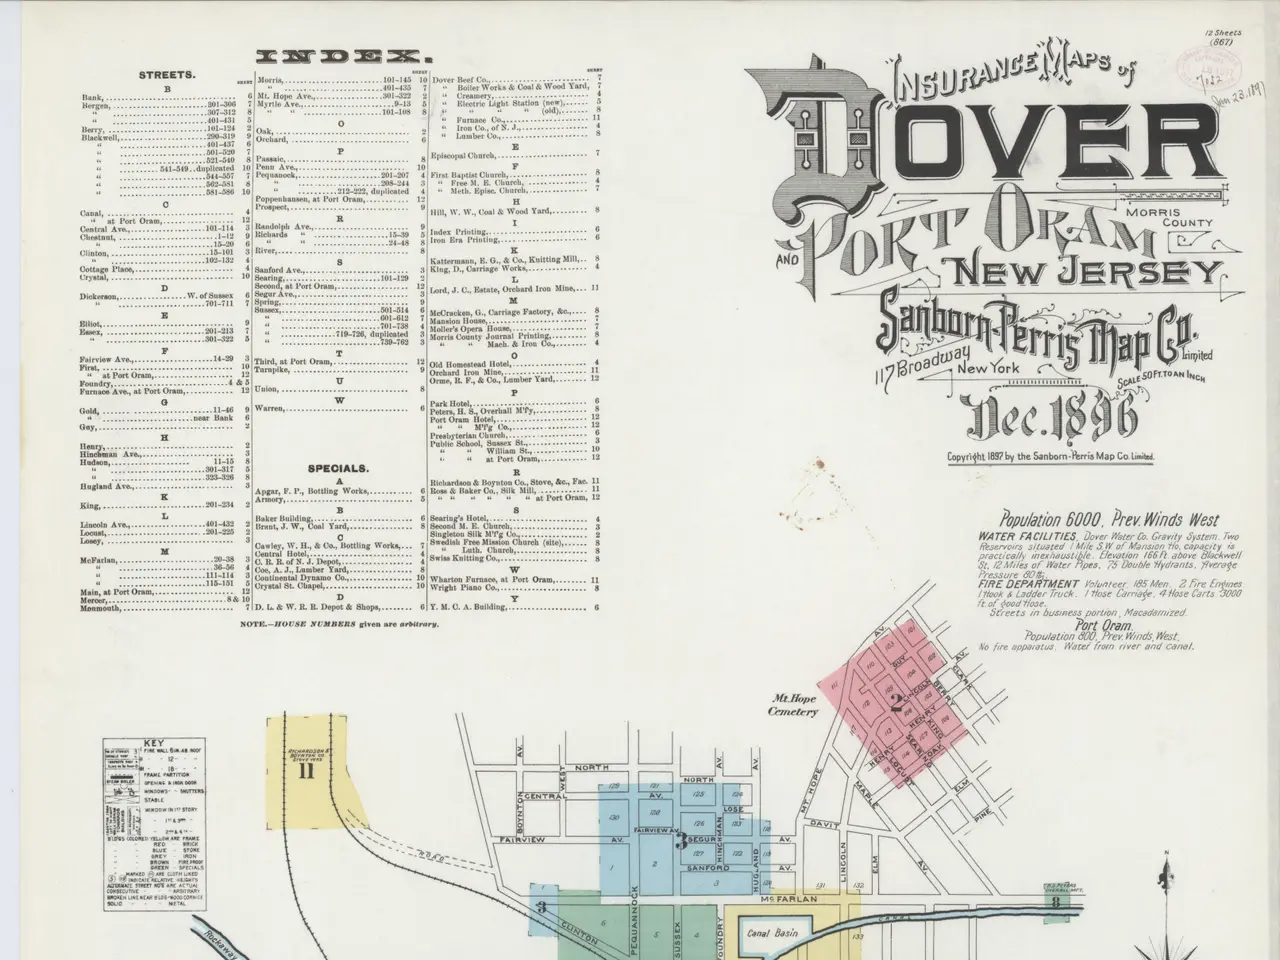 INDEX.
STREETS.
SHEET
B
Bank, 6
Bergen, 301-306 7
" 307-312 8
" 401-431 5
Berry, 101-124 2
Blackwell, 290-319 9
" 401-437 6
" 501-520 7
" 521-540 8
" 541-549, duplicated 10
" 544-557 7
" 562-581 8
" 581-586 10
C
Canal, 4
" at Port Oram, 12
Central Ave., 101-114 3
Chestnut, 1-12 9
" 15-20 6
Clinton, 15-101 3
" 102-132 4
Cottage Place, 4
Crystal, 10
D
Dickerson, W. of Sussex 6
" 701-711 7
E
Elliot, 9
Essex, 201-213 7
" 301-322 5
F
Fairview Ave., 14-29 3
First, 10
" at Port Oram, 12
Foundry, 4 & 5
Furnace Ave., at Port Oram, 12
G
Gold, 11-46 9
" near Bank 6
Guy, 2
H
Henry, 2
Hinchman Ave., 3
Hudson, 11-15 8
" 301-317 5
" 323-326 8
Hugland Ave., 3
K
King, 201-234 2
L
Lincoln Ave., 401-432 2
Locust, 201-225 2
Losey, 3
M
McFarlan, 20-38 3
" 36-56 4
" 111-114 3
" 115-151 5
Main, at Port Oram, 12
Mercer, 8 & 10
Monmouth, 7
SHEET
Morris, 101-145 10
" 401-435 7
Mt. Hope Ave., 301-322 2
Myrtle Ave., 9-13 5
" " 101-108 8
O
Oak, 2
Orchard, 6
P
Passaic, 8
Penn Ave., 10
Pequannock, 201-207 4
" 208-244 3
" 212-222, duplicated 4
Poppenhausen, at Port Oram, 12
Prospect, 9
R
Randolph Ave., 9
Richards " 15-39 5
" " 24-48 8
River, 8
S
Sanford Ave., 3
Searing, 101-129 2
Second, at Port Oram, 12
Segur Ave., 3
Spring, 9
Sussex, 501-514 6
" 601-612 7
" 701-738 4
" 719-726, duplicated 3
" 739-762 3
T
Third, at Port Oram, 12
Turnpike, 9
U
Union, 8
W
Warren, 6
SPECIALS.
A
Apgar, F. P., Bottling Works, 6
Armory, 5
B
Baker Building, 6
Brant, J. W., Coal Yard, 8
C
Cawley, W. H., & Co., Bottling Works, 7
Central Hotel, 4
C. R. R. of N. J. Depot, 4
Coe, A. J., Lumber Yard, 8
Continental Dynamo Co., 10
Crystal St. Chapel, 10
D
D. L. & W. R. R. Depot & Shops, 6
SHEET
Dover Beef Co., 7
" Boiler Works & Coal & Wood Yard, 7
" Creamery, 4
" Electric Light Station (new), 5
" " " " (old), 8
" Furnace Co., 11
" Iron Co., of N. J., 4
" Lumber Co., 8
E
Episcopal Church, 7
F
First Baptist Church, 8
" Free M. E. Church, 4
" Meth. Episc. Church, 7
H
Hill, W. W., Coal & Wood Yard, 8
I
Index Printing, 6
Iron Era Printing, 6
K
Kattermann, E. G., & Co., Knitting Mill, 8
King, D., Carriage Works, 4
L
Lord, J. C., Estate, Orchard Iron Mine, 11
M
McCracken, G., Carriage Factory, &c., 8
Mansion House, 7
Moller's Opera House, 7
Morris County Journal Printing, 8
" " Mach. & Iron Co., 4
O
Old Homestead Hotel, 4
Orchard Iron Mine, 11
Orme, R. F., & Co., Lumber Yard, 12
P
Park Hotel, 6
Peters, H. S., Overhall M'f'y, 8
Port Oram Hotel, 12
" " M'f'g Co., 12
Presbyterian Church, 6
Public School, Sussex St., 3
" " William St., 10
" " at Port Oram, 12
R
Richardson & Boynton Co., Stove, &c., Fac. 11
Ross & Baker Co., Silk Mill, 11
" " " " " " at Port Oram, 12
S
Searing's Hotel, 4
Second M. E. Church, 3
Singleton Silk M'f'g Co., 2
Swedish Free Mission Church (site), 8
" Luth. Church, 8
Swiss Knitting Co., 8
W
Wharton Furnace, at Port Oram, 11
Wright Piano Co., 8
Y
Y. M. C. A. Building, 6
NOTE.—HOUSE NUMBERS given are arbitrary.
12 Sheets
(867)
Jan 23. 1897
INSURANCE MAPS of
DOVER
AND PORT ORAM
MORRIS
COUNTY
NEW JERSEY
Sanborn-Perris Map Co.
Limited
117 Broadway New York
SCALE 50 FT. TO AN INCH
Dec. 1896
Copyright 1897 by the Sanborn-Perris Map Co. Limited.
Population 6000, Prev. Winds West
WATER FACILITIES, Dover Water Co. Gravity System. Two
Reservoirs situated 1 Mile S.W. of Mansion Ho. capacity is
practically inexhaustible. Elevation 166 ft. above Blackwell
St. 12 Miles of Water Pipes. 75 Double Hydrants. Average
Pressure 80 lbs.
FIRE DEPARTMENT Volunteer, 185 Men. 2 Fire Engines
1 Hook & Ladder Truck. 1 Hose Carriage, 4 Hose Carts 3000
ft. of good Hose.
Streets in business portion, Macadamized.
Port Oram.
Population 800, Prev. Winds, West.
No fire apparatus. Water from river and canal.
Mt. Hope
Cemetery
KEY
FIRE WALL 6 IN. AB. ROOF
" 12 "
" 18 "
FRAME PARTITION
OPENING & IRON DOOR
WINDOWS - SHUTTERS
STABLE
WINDOW IN 1ST STORY
RED BRICK
BLUE STONE
GREY IRON
BROWN FIREPROOF
GREEN SPECIALS
RICHARDSON &
BOYNTON CO.
STOVE WKS
11
2
GUY
LINCOLN
BERRY
HENRY
KING
SEARING
OAK
LOCUST
CLARK
AV.
MT. HOPE
MAPLE
ELM
PINE
DAVIT
LINCOLN
ELM
AV.
NORTH
WEST
NORTH
CENTRAL
AV.
BOYNTON
FAIRVIEW
FAIRVIEW AV.
AV.
3
SEGUR
LOSE
HINCHMAN
SANFORD
AV.
HUGLAND
129
131
125
124
130
128
126
123
127
122
1
2
3
131
132
133
ROAD
3
CLINTON
6
5
4
PEQUANNOCK
SUSSEX
FOUNDRY
MC FARLAN
Canal Basin
CANAL
8
N
Rockaway